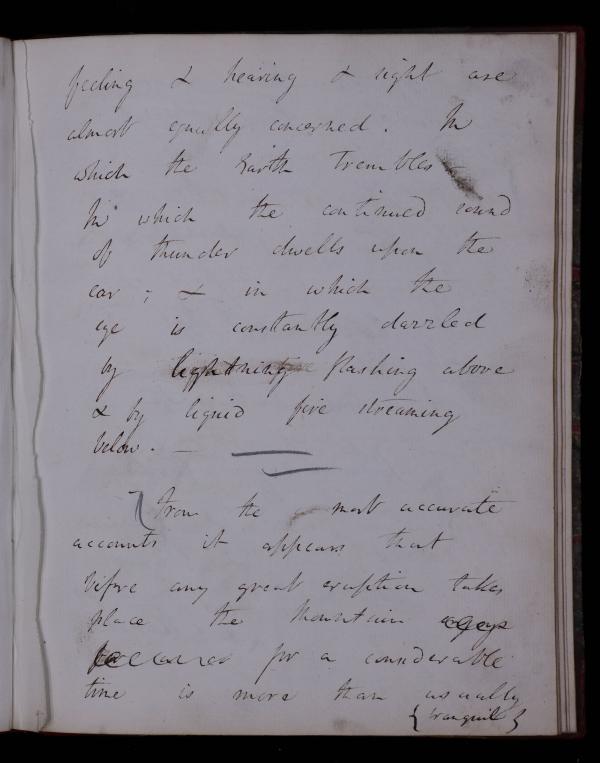 feeling & hearing & sight are
almost equally concerned. In
which the Earth Trembles
In which the continued sound
of thunder dwells upon the
ear; & in which the
eye is constantly dazzled
by lightning flashing above
& by liquid fire streaming
below. —
From the most accurate
accounts it appears that
before any great eruption takes
place the Mountain
for a considerable
time is more than usually
{tranquil}